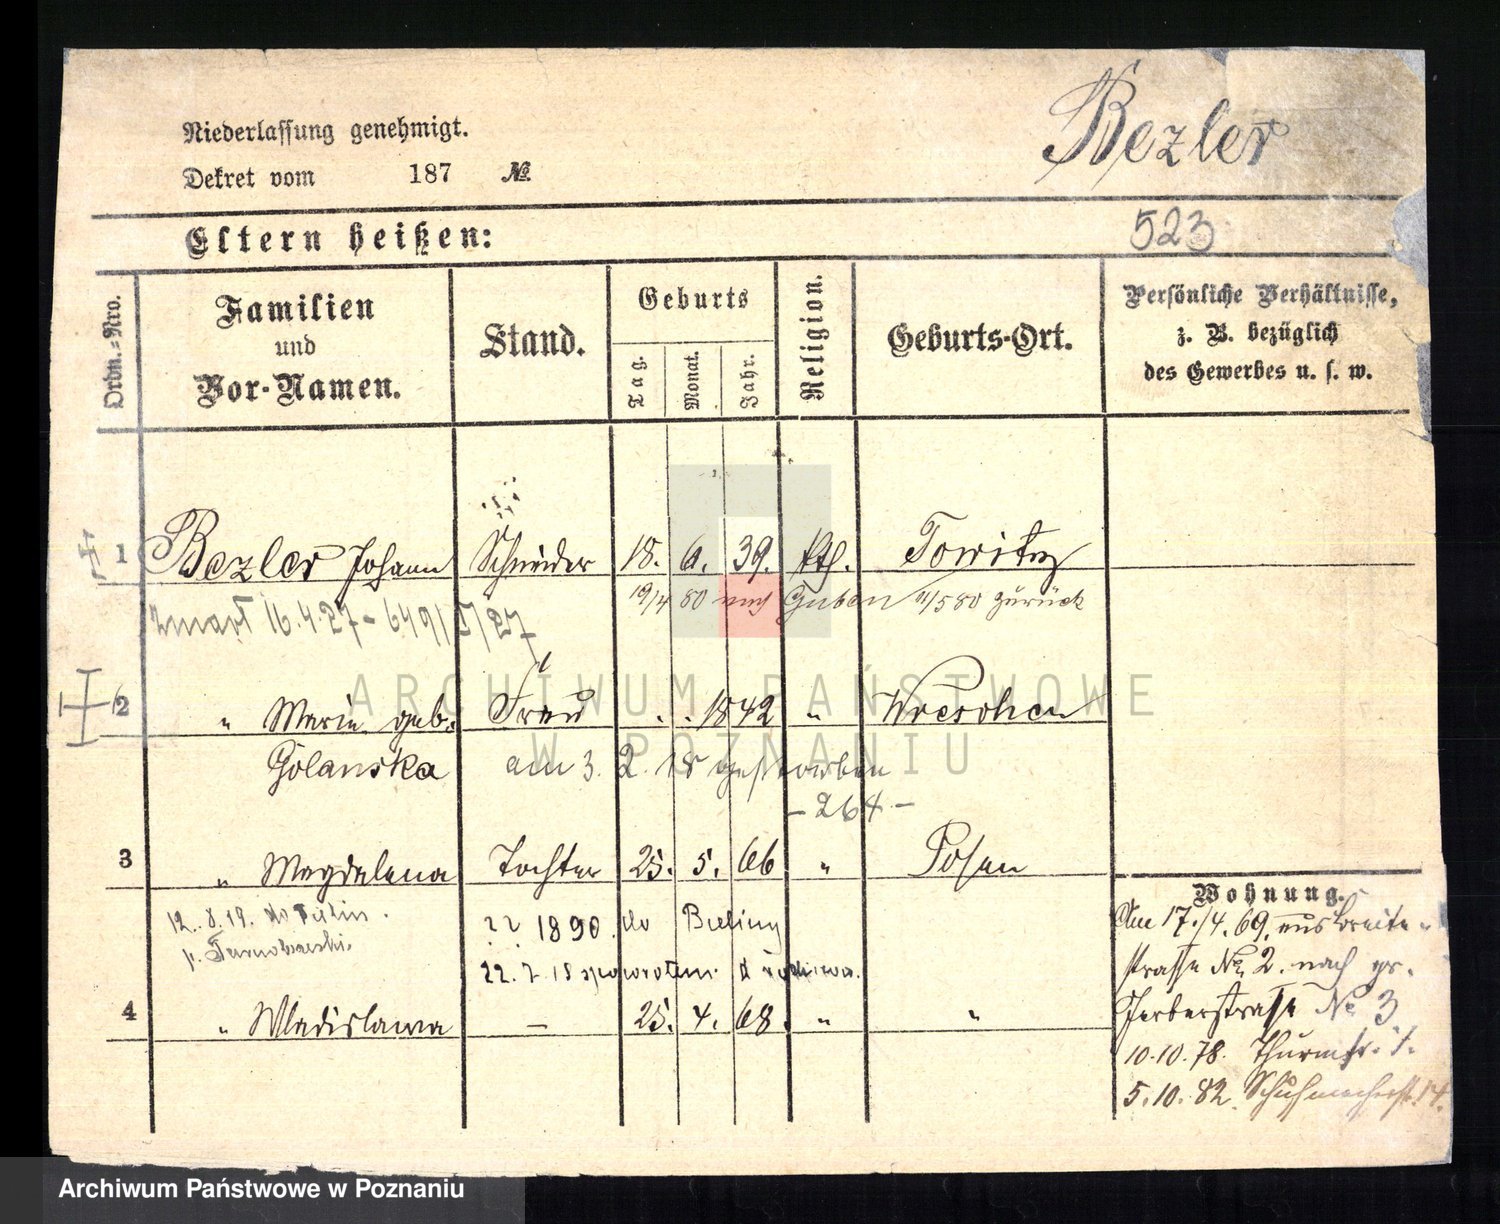 Niederlassung genehmigt.
Bezler
Dekret vom 187 №
Eltern heißen:
523
Ordn.-Nro.
Familien und Vor-Namen.
Stand.
Geburts
Tag. Monat. Jahr.
Religion.
Geburts-Ort.
Persönliche Verhältnisse, z. B. bezüglich des Gewerbes u. s. w.
1 Bezler Johann Schneider 18. 6. 39. kth. Towitz
19/4 80 nach Guben 11/5 80 zurück
zmarł 16.4.27 - 649/I/27
2 " Marie geb. Frau . . 1842 " Wreschen
Golanska am 3. 2. 18 gestorben
- 264 -
3 " Magdalena Tochter 25. 5. 66 " Posen
Wohnung.
12. 8. 19. do
22 1890. do
22. 7 18
4 " Wladislawa — 25. 4. 68. " "
Am 17./4. 69. aus Breite-
strasse No. 2. nach gr.
Gerberstrasse No 3
10.10.78. Thurmstr. 1.
5.10.82. Schuhmacherst. 14.
ARCHIWUM PAŃSTWOWE
W POZNANIU
Archiwum Państwowe w Poznaniu